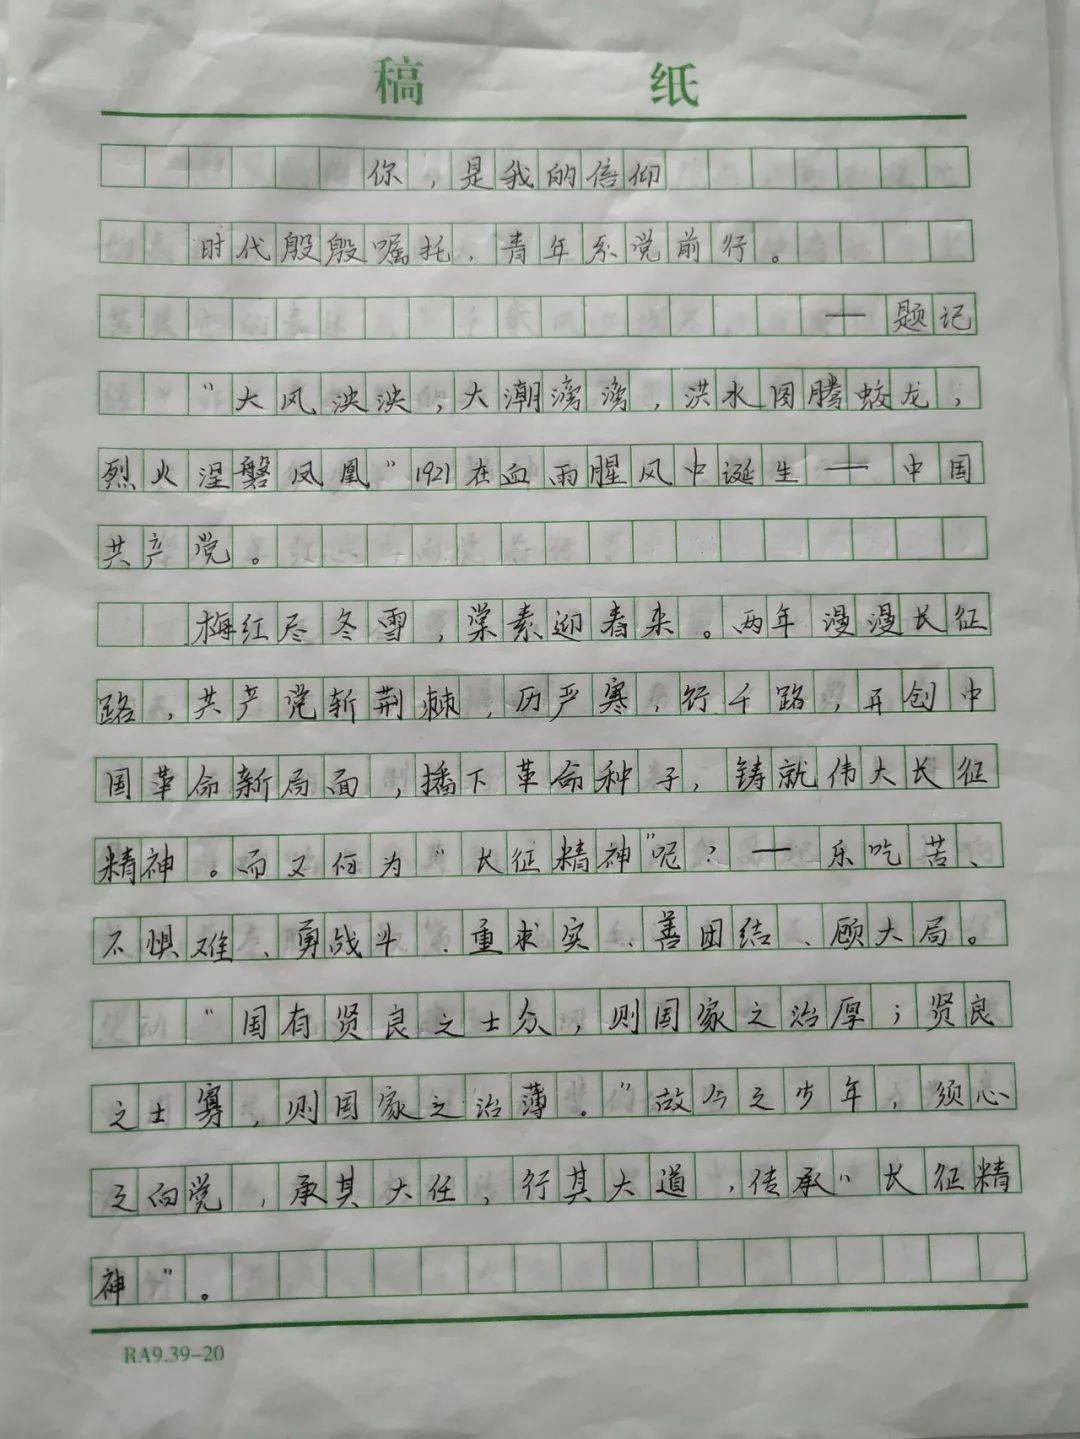 稿 纸
你，是我的信仰
时代殷殷嘱托，青年系党前行。
——题记
“大风泱泱，大潮滂滂，洪水图腾蛟龙，
烈火涅磐凤凰”1921在血雨腥风中诞生——中国
共产党。
梅红尽冬雪，棠素迎春来。两年漫漫长征
路，共产党斩荆棘，历严寒，行千路，开创中
国革命新局面，播下革命种子，铸就伟大长征
精神。而又何为“长征精神”呢？——乐吃苦、
不惧难、勇战斗、重求实、善团结、顾大局。
“国有贤良之士众，则国家之治厚；贤良
之士寡，则国家之治薄。”故今之少年，须心
之向党，承其大任，行其大道，传承“长征精
神”。
RA9.39-20